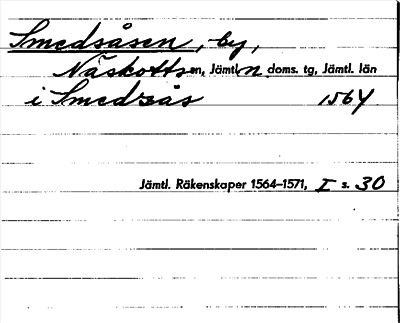 Smedsåsen, by,
Näskotts sn, Jämtl. n doms. tg, Jämtl. län
i Smedzås 1564
Jämtl. Räkenskaper 1564–1571, I s. 30